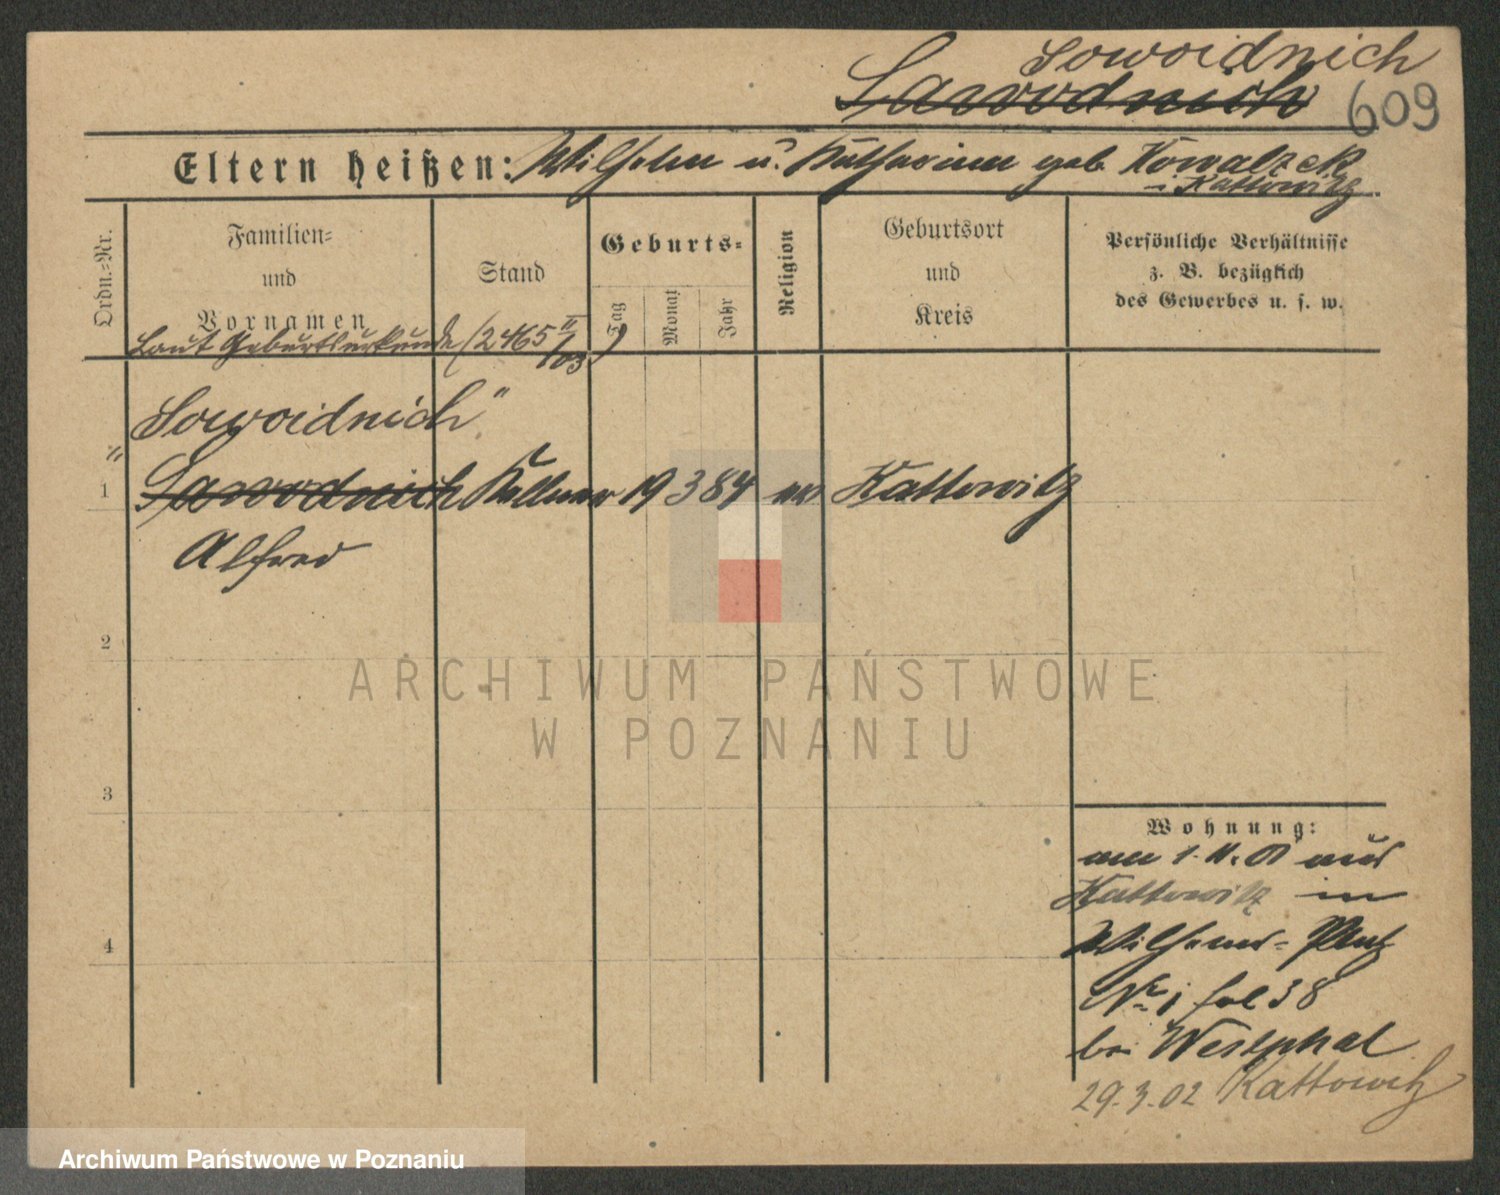 Sowoidnich
Sawodnich 609
Eltern heißen: Wilhelm u. Katharina geb. Kowalzek
Kattowitz
Ordn.=Nr.
Familien=
und
Vornamen
Stand
Geburts=
Tag
Monat
Jahr
Religion
Geburtsort
und
Kreis
Persönliche Verhältnisse
z. B. bezüglich
des Gewerbes u. s. w.
Laut Geburtsurkunde (2465 II/03)
Sowoidnich"
"
1 Sawodnich Kellner 19 3 84 Kattowitz
Alfred
2
ARCHIWUM PAŃSTWOWE
W POZNANIU
3
Wohnung:
am 1. 11. 01 aus
Kattowitz in
Wilhelms-Platz
No 1 fol 38
bei Westphal
29.3.02 Kattowitz
4
Archiwum Państwowe w Poznaniu